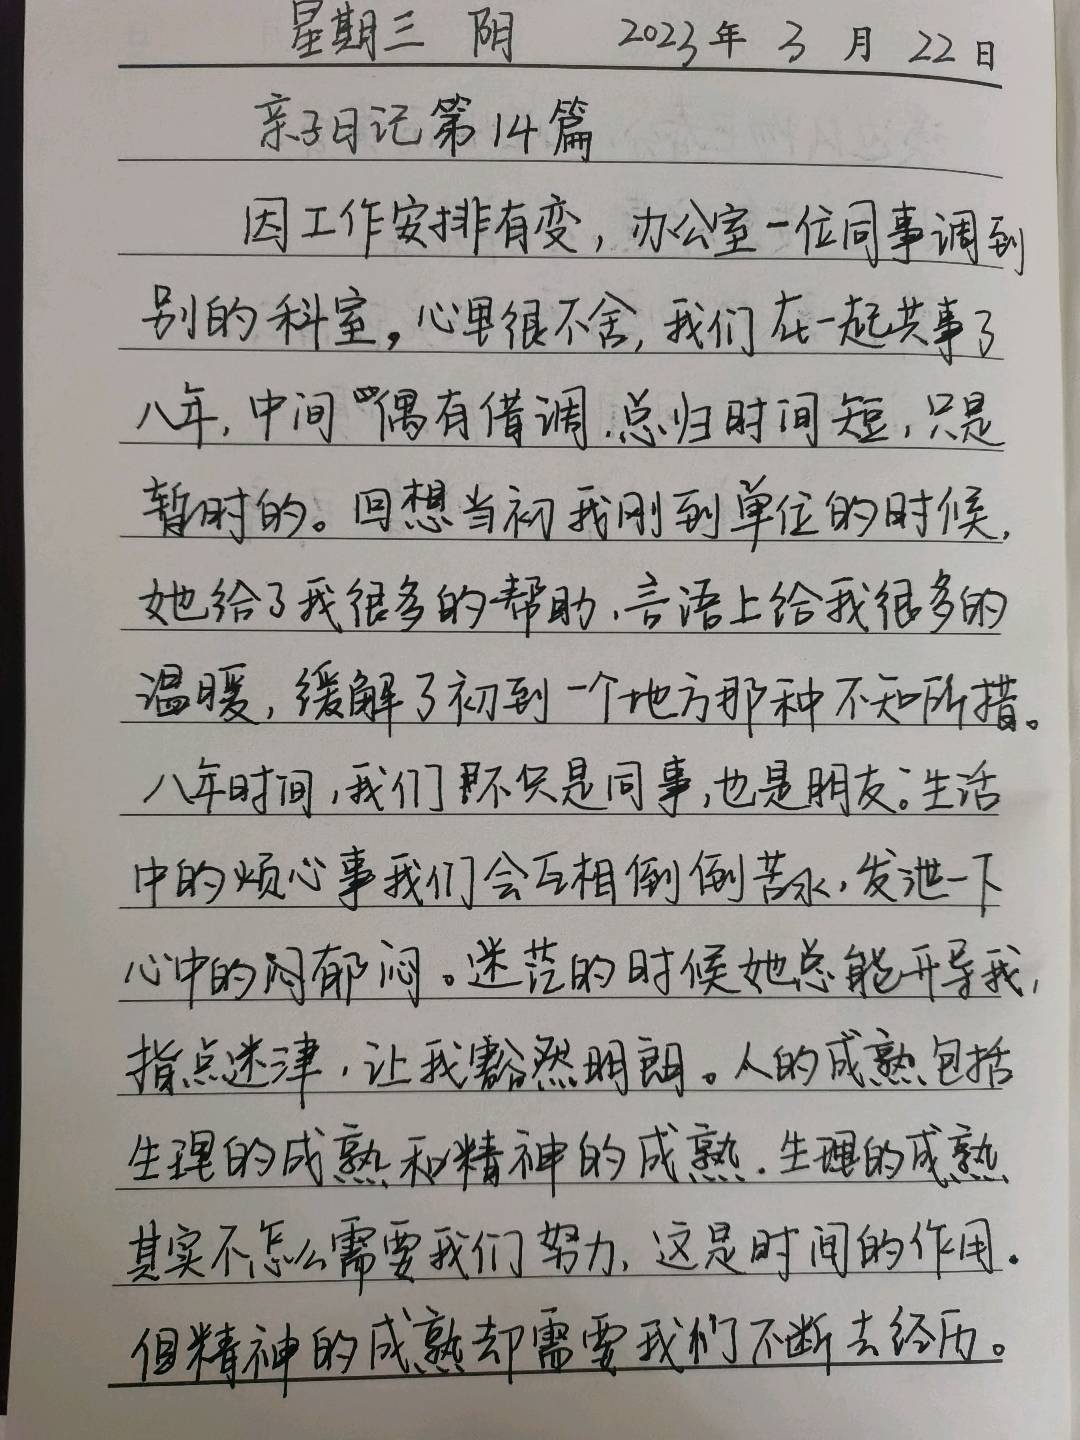 星期三 阴 2023年3月22日
亲子日记第14篇
因工作安排有变，办公室一位同事调到
别的科室。心里很不舍，我们在一起共事了
八年，中间偶有借调，总归时间短，只是
暂时的。回想当初我刚到单位的时候，
她给了我很多的帮助，言语上给我很多的
温暖，缓解了初到一个地方那种不知所措。
八年时间，我们不只是同事，也是朋友。生活
中的烦心事我们会互相倒倒苦水，发泄一下
心中的闷郁闷。迷茫的时候她总能开导我，
指点迷津，让我豁然明朗。人的成熟包括
生理的成熟和精神的成熟．生理的成熟
其实不怎么需要我们努力，这是时间的作用．
但精神的成熟却需要我们不断去经历。